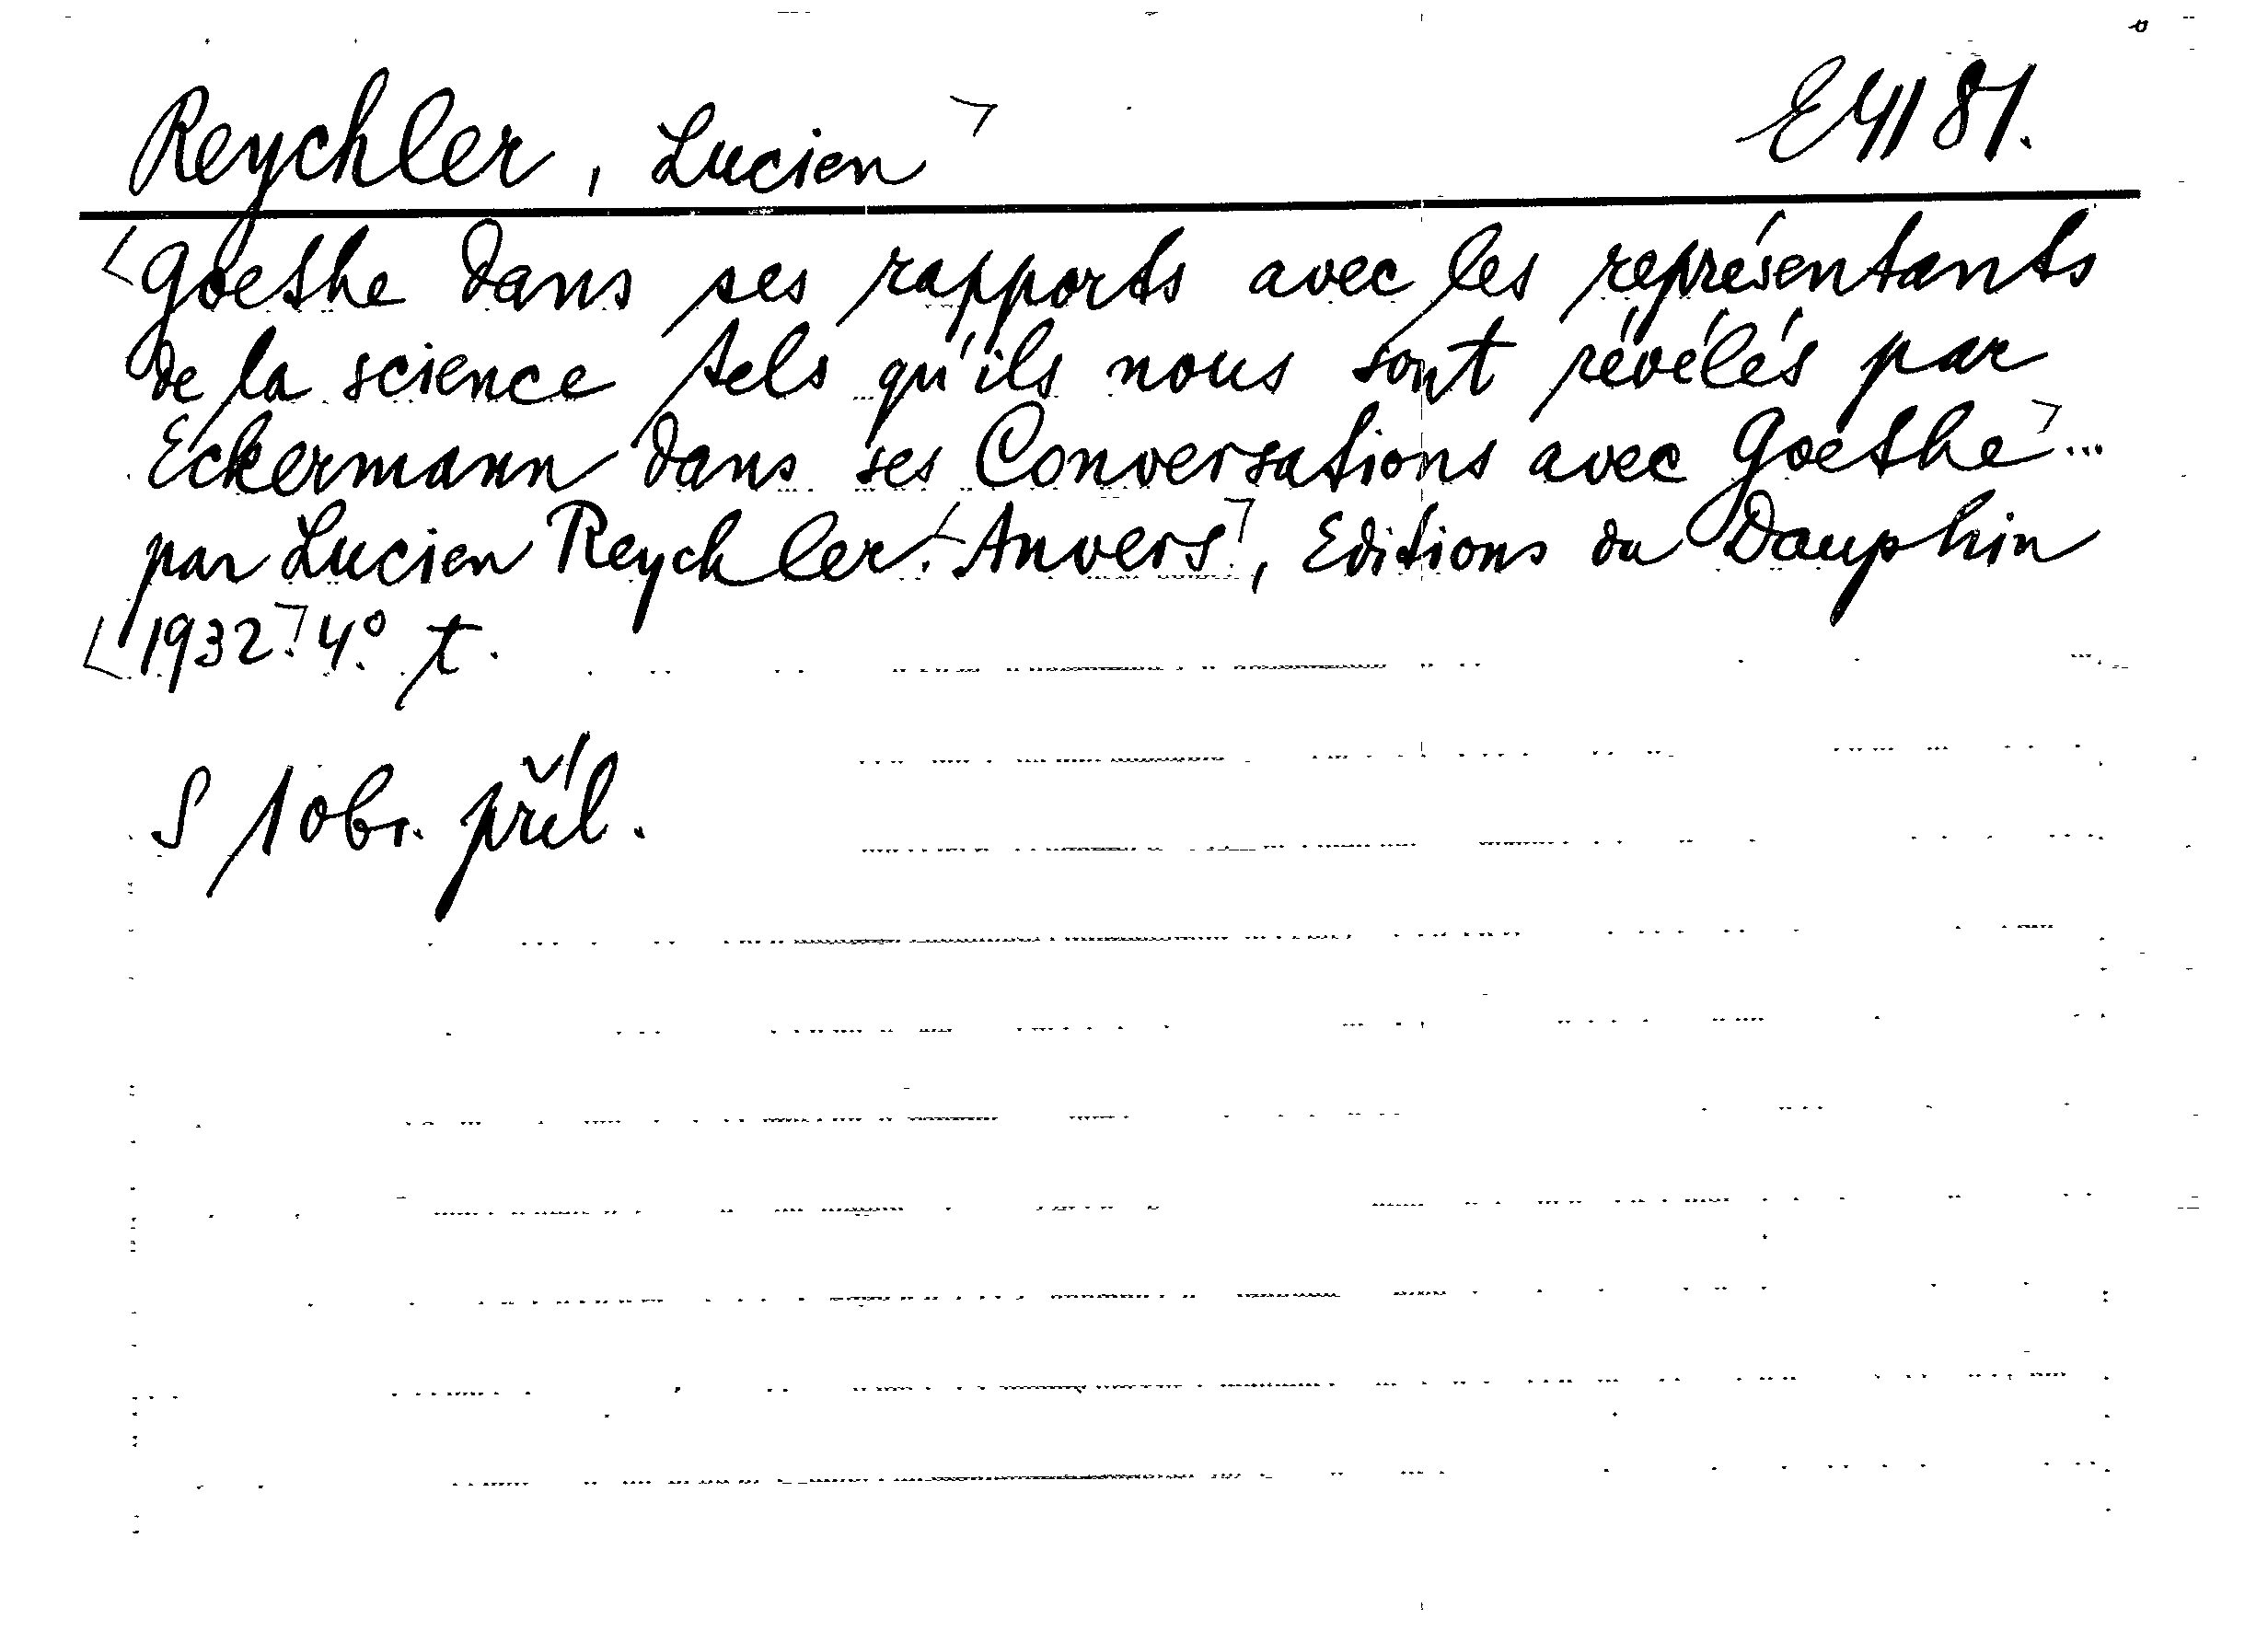 Reychler, Lucien
E4187.
Goethe dans ses rapports avec les représentants
de la science tels qu'ils nous sont révélés par
Eckermann dans ses Conversations avec Goethe...
par Lucien Reychler. Anvers, Editions du Dauphin
1932. 4° t.
S 1 obr. příl.